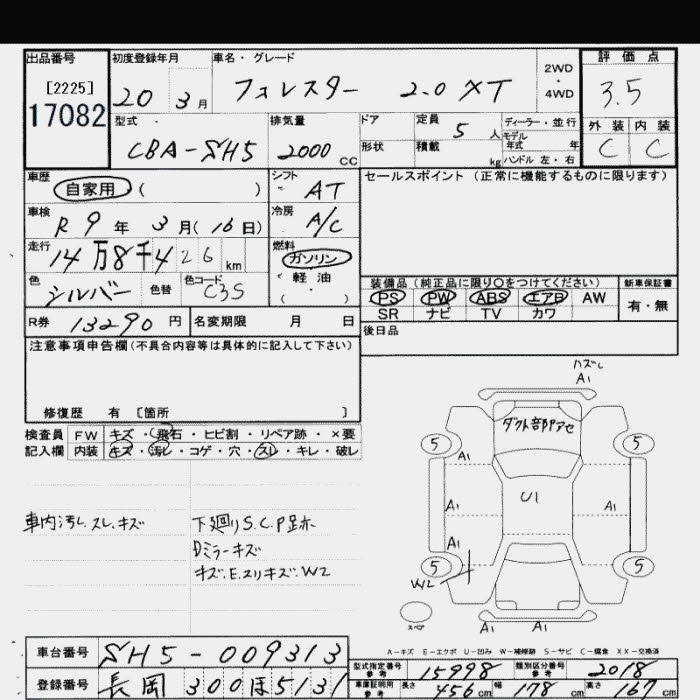 出品番号
[2225]
17082
初度登録年月
20 3月
車名・グレード
フォレスター 2.0 XT
2WD
・
4WD
評価点
3.5
外装 内装
C C
型式
CBA-SH5
排気量
2000 CC
ドア
形状
定員 5 人
積載 kg
ディーラー・並行
モデル
年式 年
ハンドル 左・右
車歴
自家用 ( )
シフト
AT
車検
R 9 年 3 月 (16 日)
冷房
A/C
走行
14万8千426 km
燃料
ガソリン
・
軽油
・
( )
色
シルバー
色替
色コード
C3S
R券 13290 円
名変期限 月 日
セールスポイント (正常に機能するものに限ります)
装備品 (純正品に限り○をつけてください)
PS PW ABS エアB AW
SR ナビ TV カワ
新車保証書
有・無
後日品
注意事項申告欄(不具合内容等は具体的に記入して下さい)
修復歴 有 [箇所 ]
検査員
記入欄
FW キズ・飛石・ヒビ割・リペア跡・×要
内装 キズ・汚レ・コゲ・穴・スレ・キレ・破レ
車内汚レ.スレ.キズ
下廻りS.C.P跡
Dミラーキズ
キズ.E.スリキズ.W2
ハズレ
A1
ダクト部PアE
5
5
A1
U1
A1
A1
A1
5
5
W2
スペア
A1 A1
A−キズ E−エクボ U−凹み W−補修跡 S−サビ C−腐食 XX−交換済
車台番号 SH5-009313
登録番号 長岡 300 ほ 5131
型式指定番号
参考
15998
類別区分番号
参考
2018
車庫証明用
参考
長さ 456 cm 幅 178 cm 高さ 167 cm